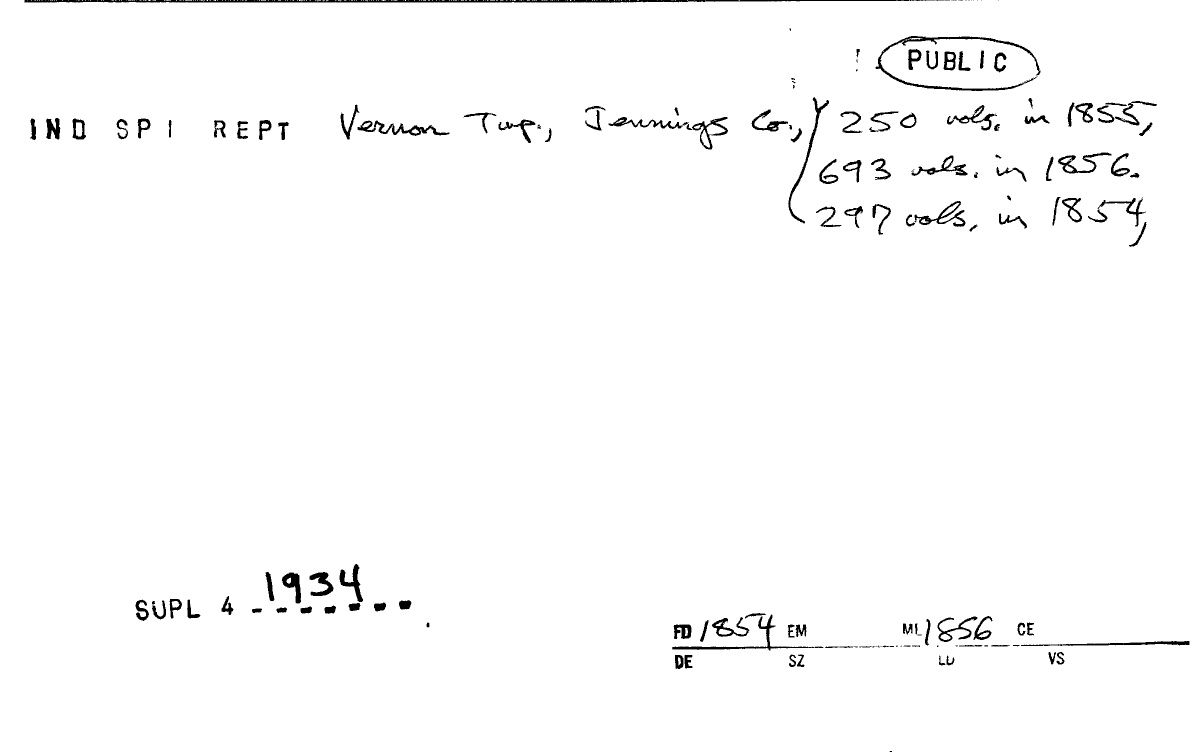 PUBLIC
IND SPI REPT Vernon Twp., Jennings Co., 250 vols. in 1855,
693 vols. in 1856.
297 vols. in 1854,
SUPL 4 1934
FD 1854 EM ML 1856 CE
DE SZ LD VS